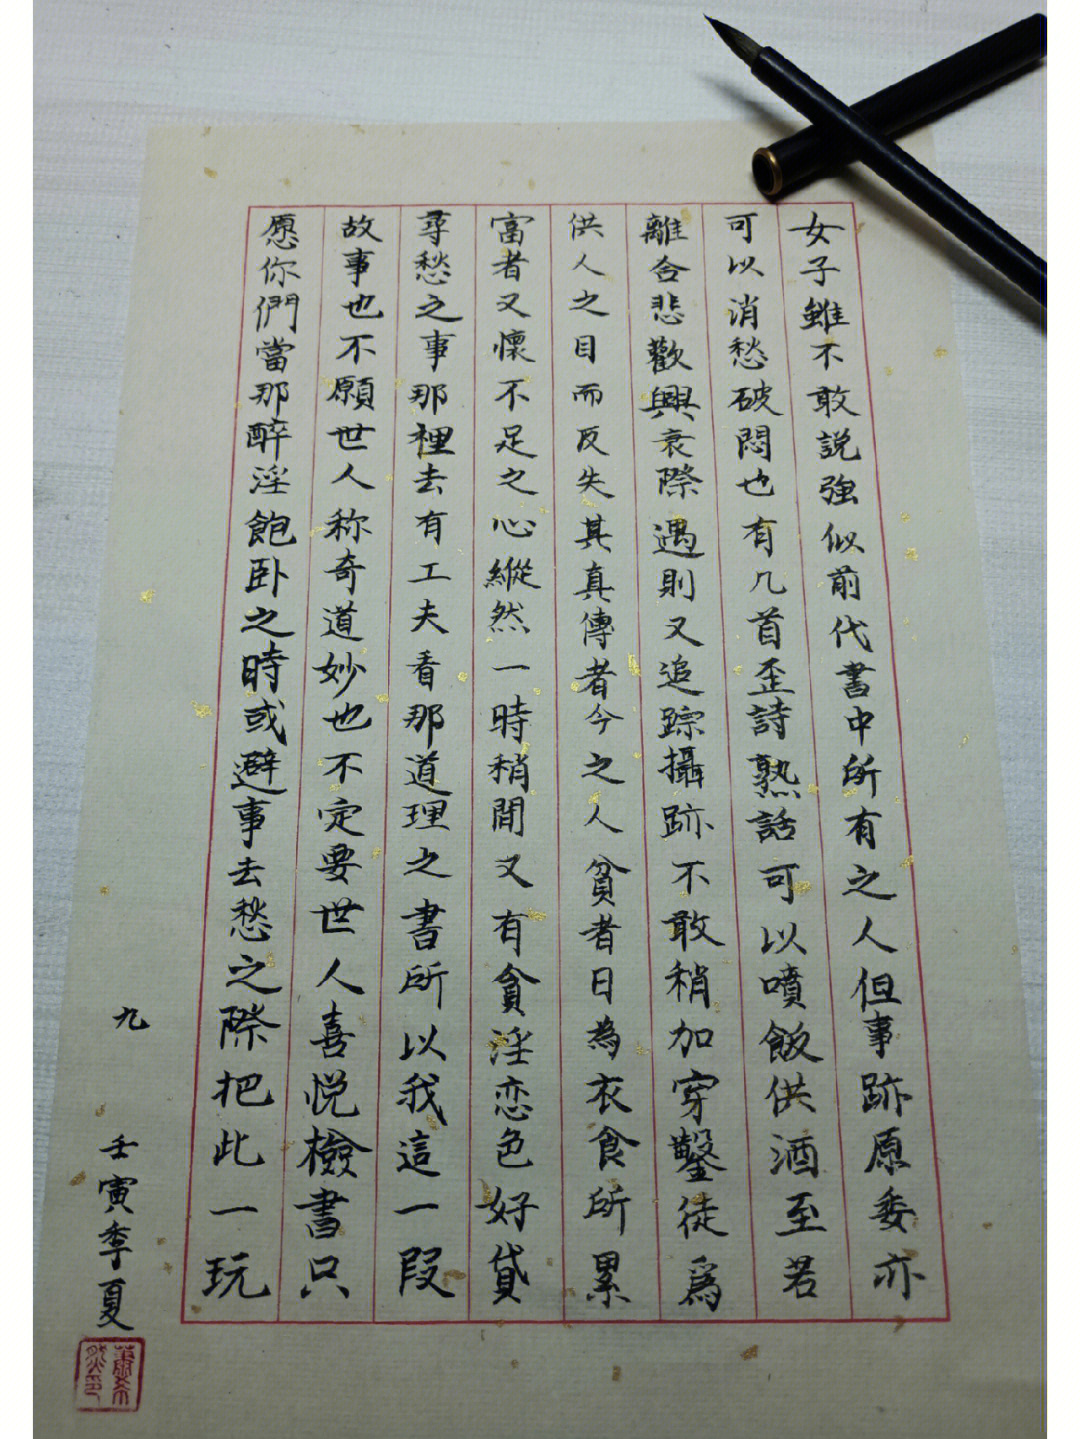 女子雖不敢説強似前代書中所有之人但事跡原委亦
可以消愁破悶也有几首歪詩熟話可以噴飯供酒至若
離合悲歡興衰際遇則又追踪攝跡不敢稍加穿鑿徒爲
供人之目而反失其真傳者今之人貧者日為衣食所累
富者又懷不足之心縱然一時稍閒又有貪淫恋色好貨
尋愁之事那裡去有工夫看那道理之書所以我這一段
故事也不願世人称奇道妙也不定要世人喜悦檢書只
愿你們當那醉淫飽卧之時或避事去愁之際把此一玩
九
壬寅季夏